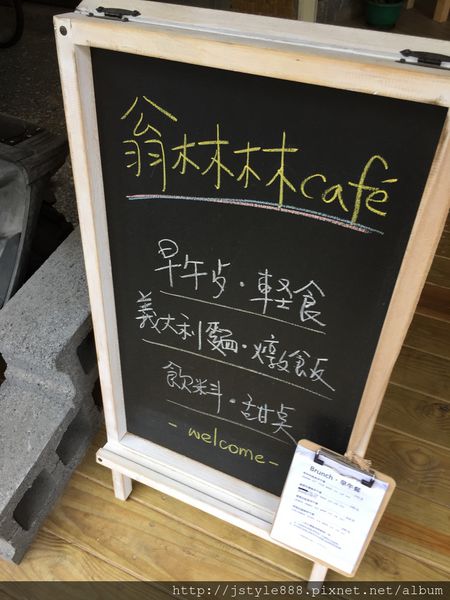 翁林林café
早午歺・輕食
義大利麵・燉飯
飲料・甜奌
- welcome -
Brunch・早午餐
http://jstyle888.pixnet.net/album